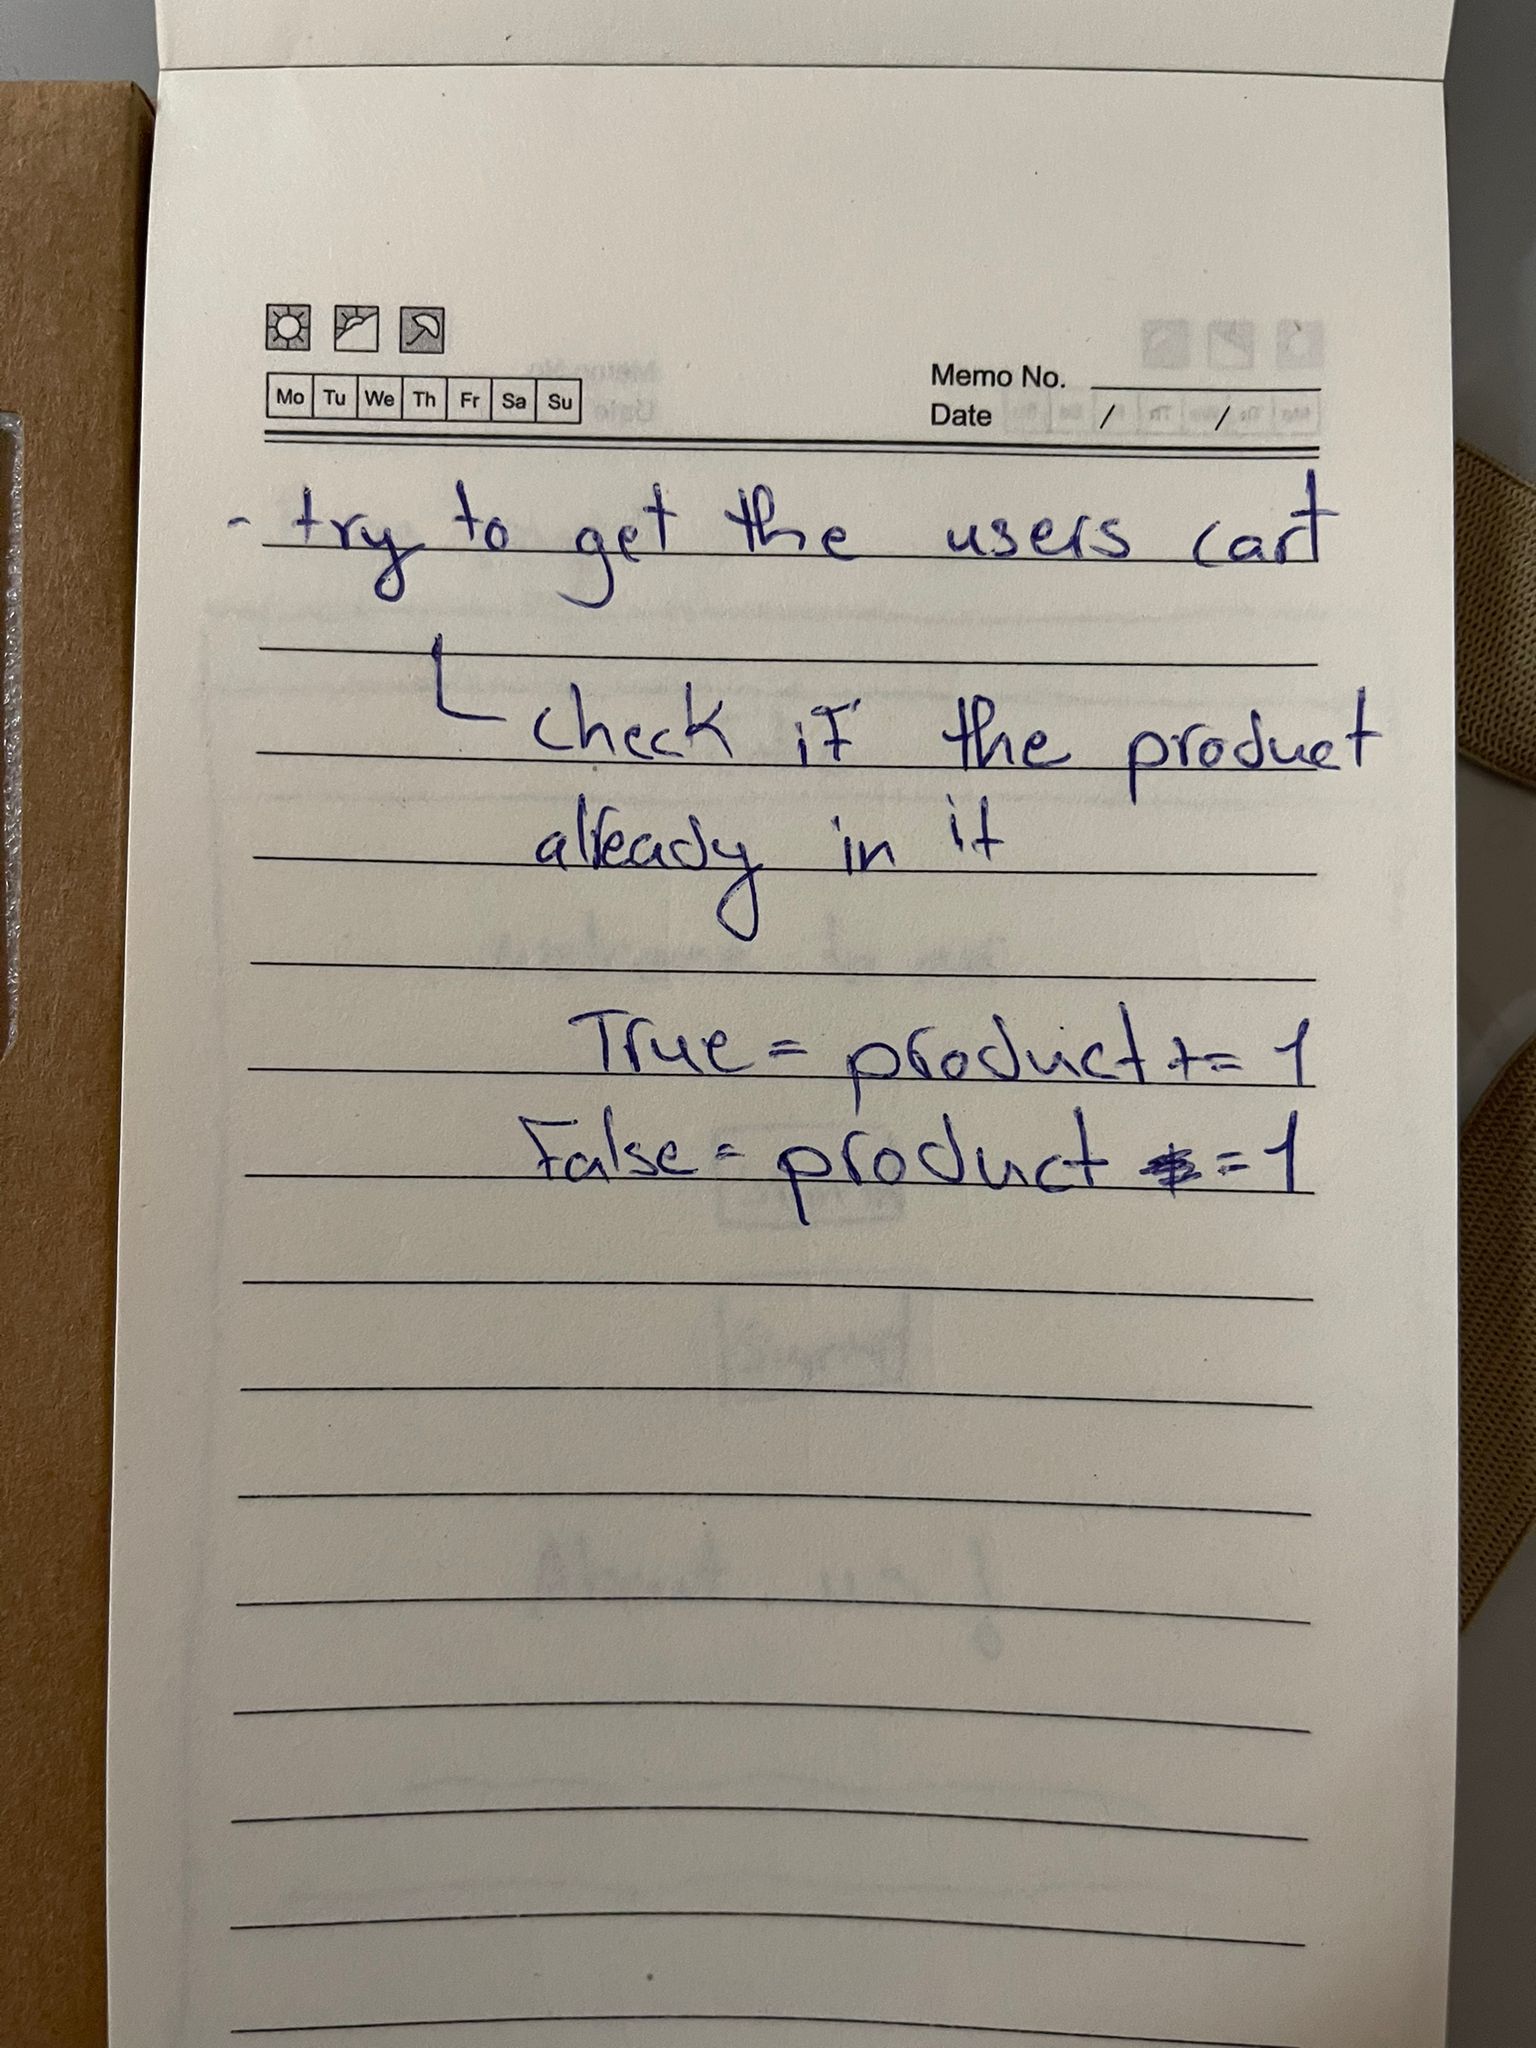 Mo Tu We Th Fr Sa Su
Memo No.
Date / /
- try to get the users cart
check if the product
already in it
True = product += 1
False = product = 1